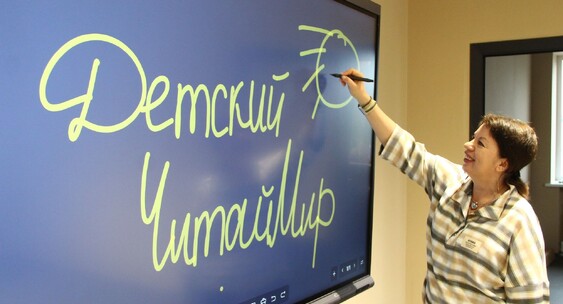 Детский
ЧитайМир